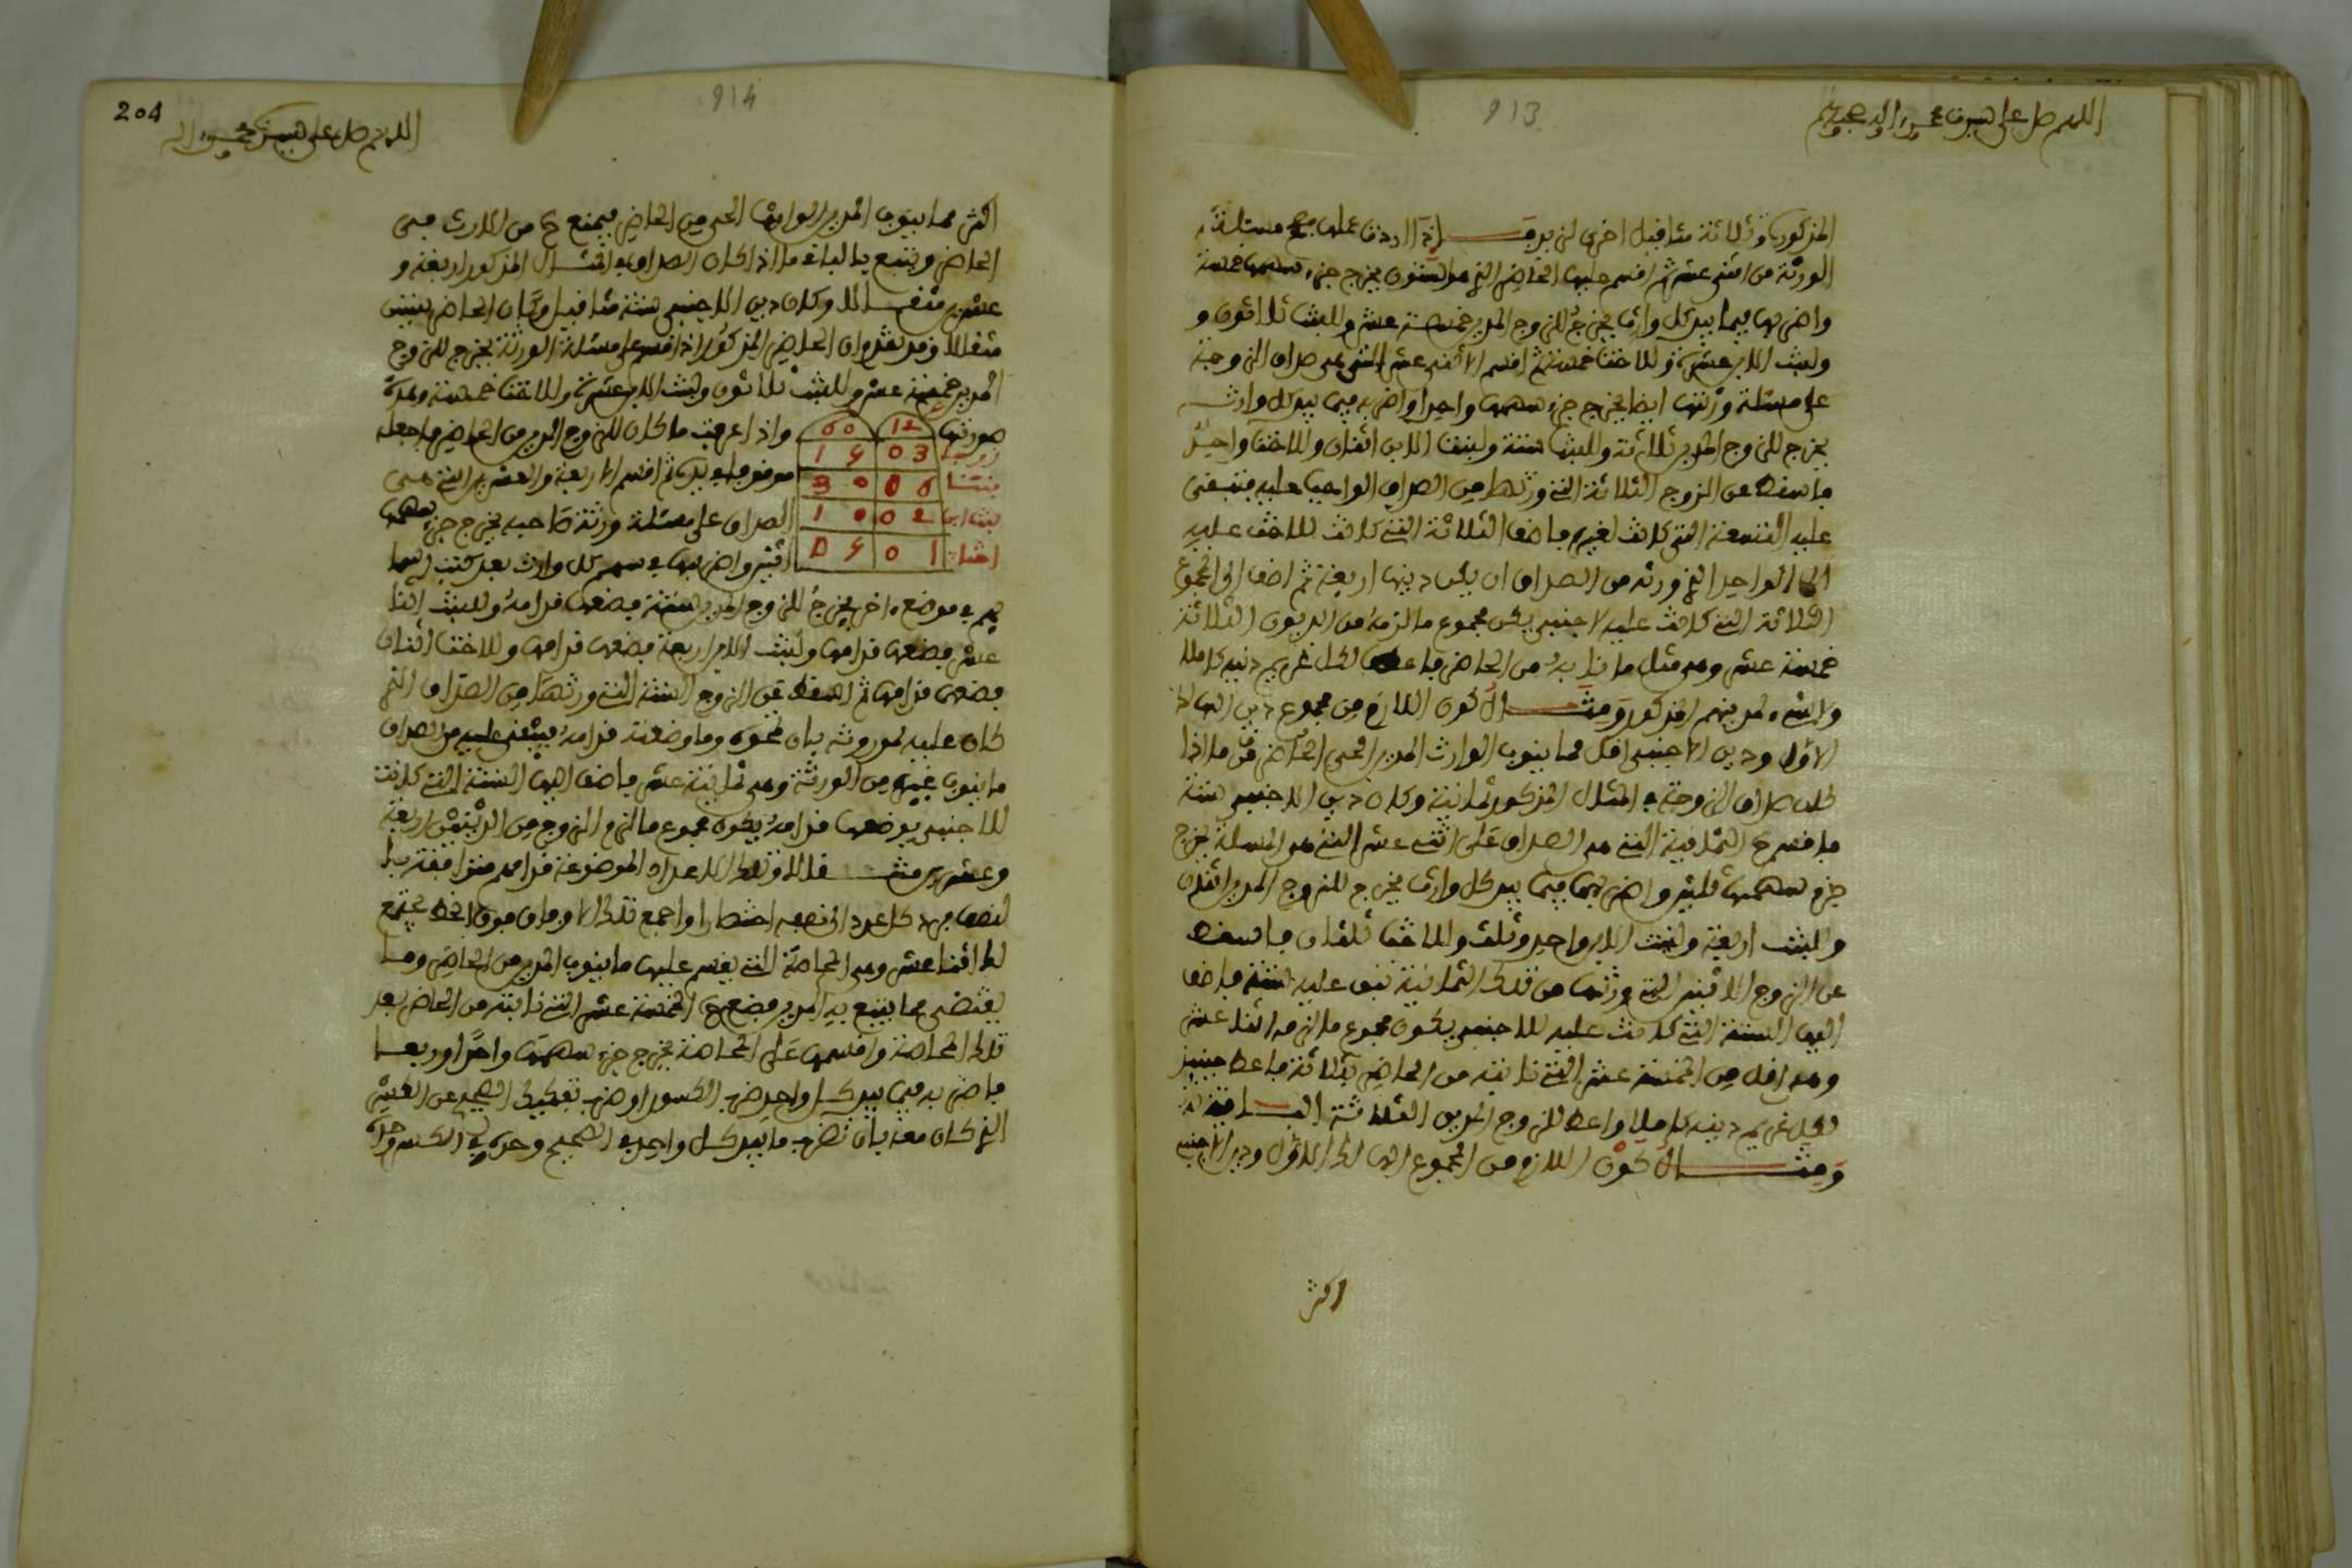 اللهم صل على سيدنا محمد وآله وصحبه وسلم
913
المذكور وثلاثة مثاقيل اخرى لزيد فإذا اردت عملها صحح مسئلة
الورثة من اثنى عشر ثم اقسم عليها الحاضر الذي هو الستون يخرج جزء سهمها خمسة
واضربها فيما بيد كل وارث يخرج للزوج المدين خمسة عشر وللبنت ثلاثون و
ولبنت الابن عشرة وللاخت خمسة ثم اقسم الاثني عشر التي هي صداق الزوجة
على مسئلة ورثتها ايضا يخرج جزء سهمها واحدا واضربه فيما بيد كل وارث
يخرج للزوج المدين ثلاثة وللبنت ستة ولبنت الابن اثنان وللاخت واحد
فاسقط عن الزوج الثلاثة التي ورثها من الصداق الواجب عليه فتبقى
عليه التسعة التي كانت لغيره فاضف الثلاثة التي كانت للاخت عليه
الى الواحد الذي ورثه من الصداق ان يكن دينها اربعة ثم اضف الى المجموع
الثلاثة التي كانت عليه لاجنبي يكن مجموع ما لزمه من الديون الثلاثة
خمسة عشر وهو مثل ما نابه من الحاضر فاعط لكل غريم دينه كاملا
ولا شيء لمدينهم المذكور ومثال كون اللازم من مجموع دين الهالك
الاول ودين الاجنبي اقل مما ينوب الوارث المدين الحي الحاضر ما اذا
كان صداق الزوجة في المثال المذكور ثمانية وكان دين الاجنبي ستة
فاقسم الثمانية التي هي الصداق على اثني عشر التي هي المسئلة يخرج
جزء سهمها ثلثين واضربهما فيما بيد كل وارث يخرج للزوج المدين اثنان
وللبنت اربعة ولبنت الابن واحد وثلث وللاخت ثلثان فاسقط
عن الزوج الاثنين التي ورثها من تلك الثمانية تبق عليه ستة فاضف
اليها الستة التي كانت عليه للاجنبي يكون مجموع ما لزمه اثنا عشر
وهو اقل من الخمسة عشر التي نابته من الحاضر بثلاثة فاعط حينئذ
لكل غريم دينه كاملا واعط للزوج المدين الثلاثة الباقية له
ومثال كون اللازم من المجموع الهالك الاول ودين الاجنبي
اكثر
204
914
اللهم صل على سيدنا محمد وآله
اكثر مما ينوب المدين الوارث الحي من الحاضر فيمنع ح من الارث في
الحاضر ويتبع بالباقي ما اذا كان الصداق في المثال المذكور اربعة و
عشرين مثقالا وكان دين الاجنبي ستة مثاقيل وكان الحاضر ستين
مثقالا وقد تقدم ان الحاضر المذكور اذا قسم على مسئلة الورثة يخرج للزوج
المدين خمسة عشر وللبنت ثلاثون ولبنت الابن عشرة وللاخت خمسة وهذه
صورتها 12 60 واذا عرفت ما كان للزوج المدين من الحاضر فاجعله
زوج 03 15 
بنت 06 30 موضوعا في يده ثم اقسم الاربعة والعشرين التي هي
بنت ابن 02 10 الصداق على مسئلة ورثة صاحبه يخرج جزء سهمها
اخت 01 05 اثنين واضربها في سهم كل وارث بعد كتب اسما
يهم في موضع اخر يخرج للزوج المدين ستة فضعها قدامه وللبنت اثنا
عشر فضعها قدامها ولبنت الابن اربعة فضعها قدامها وللاخت اثنان
فضعها قدامها ثم اسقط عن الزوج الستة التي ورثها من الصداق الذي
كان عليه لموروثه بان تمحوه وما وضعته قدامه يبقى عليه من الصداق
ما ينوب غيره من الورثة وهو ثمانية عشر فاضف اليها الستة التي كانت
للاجنبي بوضعها قدامه يكون مجموع ما لزم الزوج من الدينين اربعة
وعشرين مثقالا وتلك الاعداد الموضوعة قدامهم متوافقة بال
نصف فرد كل عدد الى نصفه اختصارا واجمع تلك الاوفاق فوق الخط يجتمع
لك اثنا عشر وهو المحاصة التي يقسم عليها ما ينوب المدين من الحاضر وما
يقتضى مما يتبع به المدين فضع ح الخمسة عشر التي نابته من الحاضر بعد
تلك المحاصة واقسمها على المحاصة يخرج جزء سهمها واحدا وربعا
فاضربه فيما بيد كل واحد ضرب الكسور او ضرب تفكيك الصحيح عن الكسر
الذي كان معه بان تضرب ما بيد كل واحد في الصحيح وحده وفي الكسر وحده